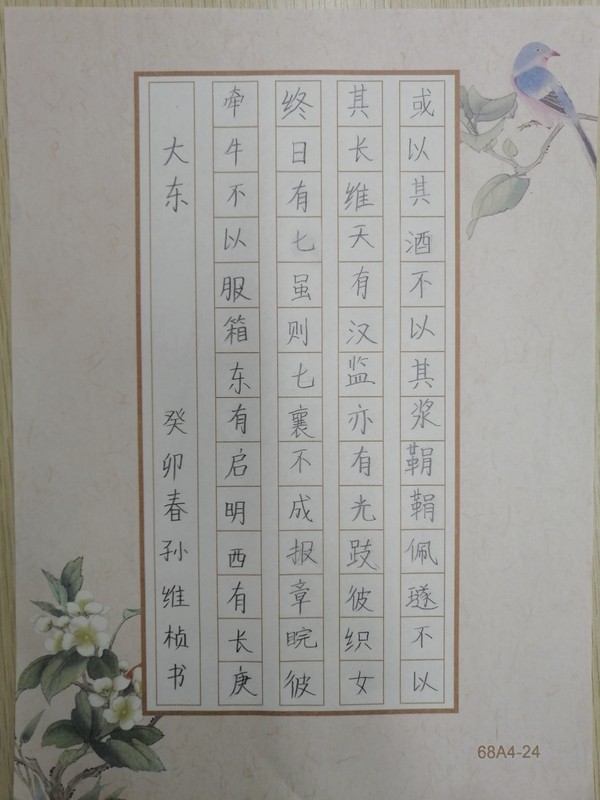 或以其酒不以其浆鞙鞙佩璲不以
其长维天有汉监亦有光跂彼织女
终日有七虽则七襄不成报章睆彼
牵牛不以服箱东有启明西有长庚
大东 癸卯春孙维桢书
68A4-24